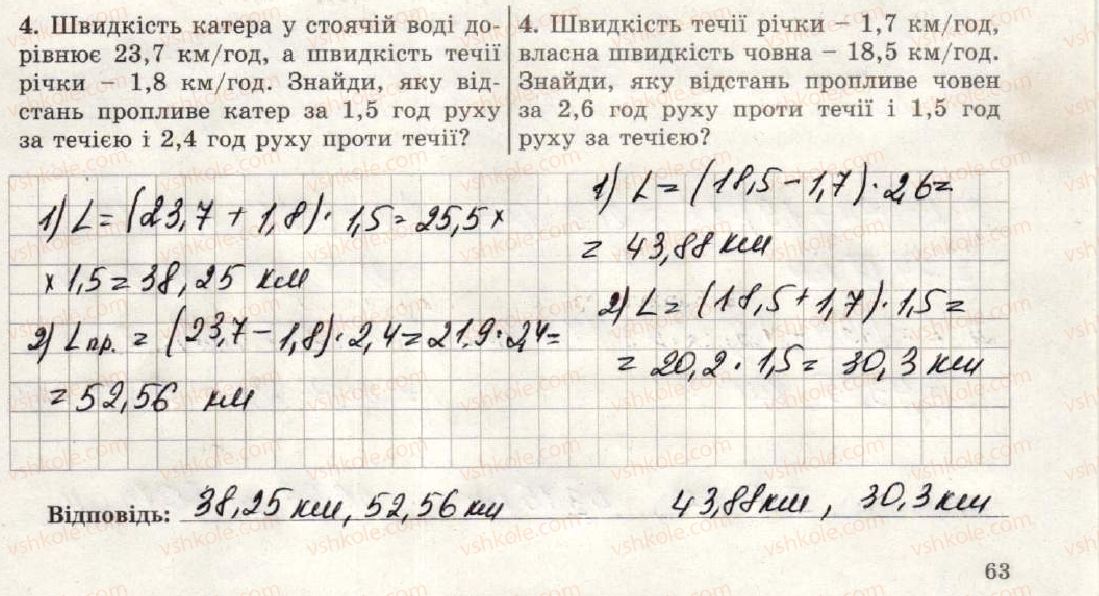 4. Швидкість катера у стоячій воді до-
рівнює 23,7 км/год, а швидкість течії
річки – 1,8 км/год. Знайди, яку від-
стань пропливе катер за 1,5 год руху
за течією і 2,4 год руху проти течії?
4. Швидкість течії річки – 1,7 км/год,
власна швидкість човна – 18,5 км/год.
Знайди, яку відстань пропливе човен
за 2,6 год руху проти течії і 1,5 год
руху за течією?
1) L = (23,7 + 1,8) · 1,5 = 25,5 ×
× 1,5 = 38,25 км
2) L пр. = (23,7 – 1,8) · 2,4 = 21,9 · 2,4 =
= 52,56 км
1) L = (18,5 – 1,7) · 2,6 =
= 43,88 км
2) L = (18,5 + 1,7) · 1,5 =
= 20,2 · 1,5 = 30,3 км
Відповідь: 38,25 км, 52,56 км 43,88 км, 30,3 км
63
vshkole.com